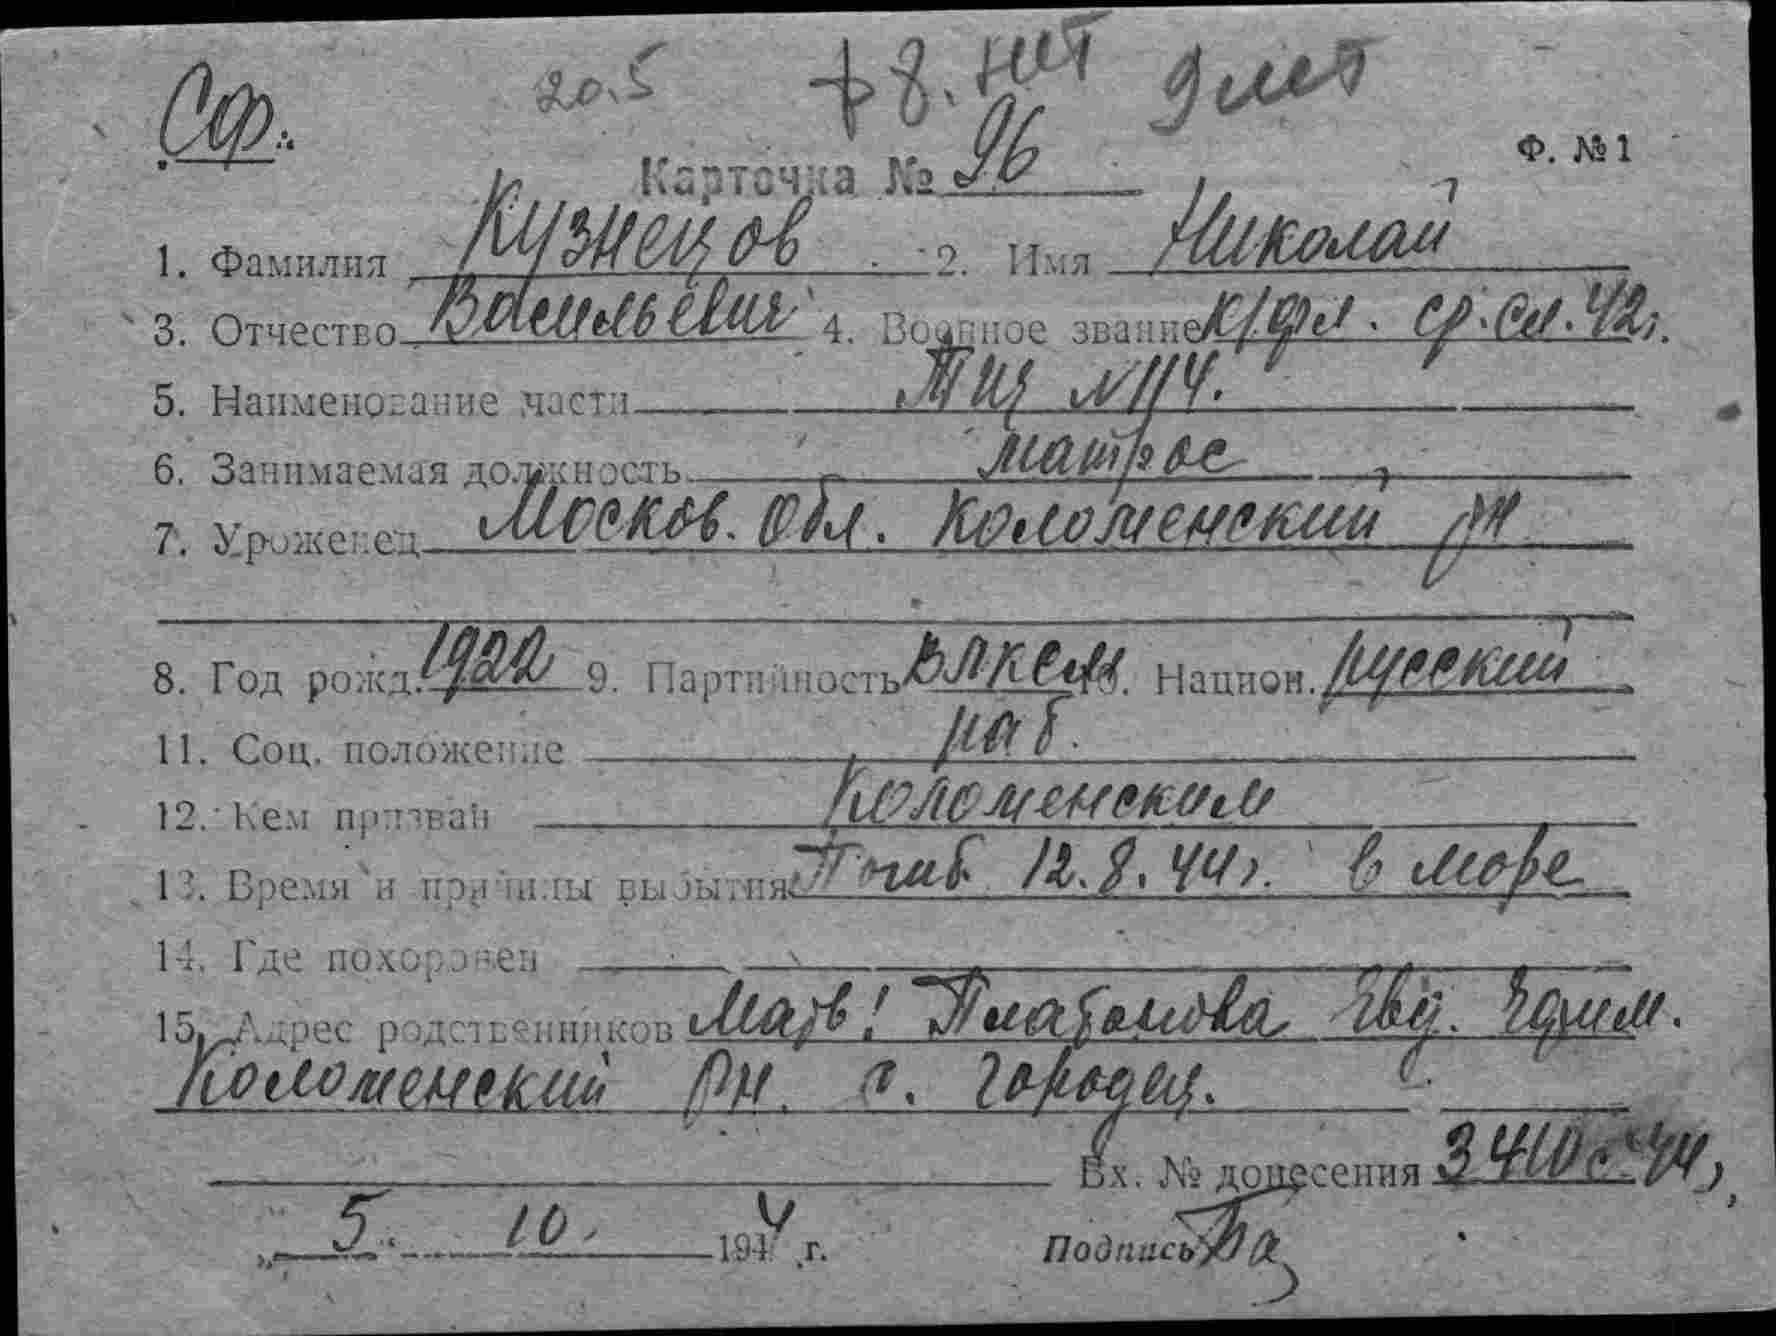 СФ.
20.5
+ 8. нет 9 лет
Ф. № 1
Карточка № 96
1. Фамилия Кузнецов 2. Имя Николай
3. Отчество Васильевич 4. Военное звание к/фл. ср. сл. 42г.
5. Наименование части ТЩ N 114.
6. Занимаемая должность матрос
7. Уроженец Москов. обл. Коломенский рн
8. Год рожд. 1922 9. Партийность ВЛКСМ 10. Национ. русский
11. Соц. положение раб.
12. Кем призван Коломенским
13. Время и причины выбытия Погиб 12.8.44г. в море
14. Где похоронен
15. Адрес родственников Мать: Платонова Евд. Ефим.
Коломенский рн. с. Городец.
Вх. № донесения 3410с 44г.
„5" 10. 1944 г. Подпись